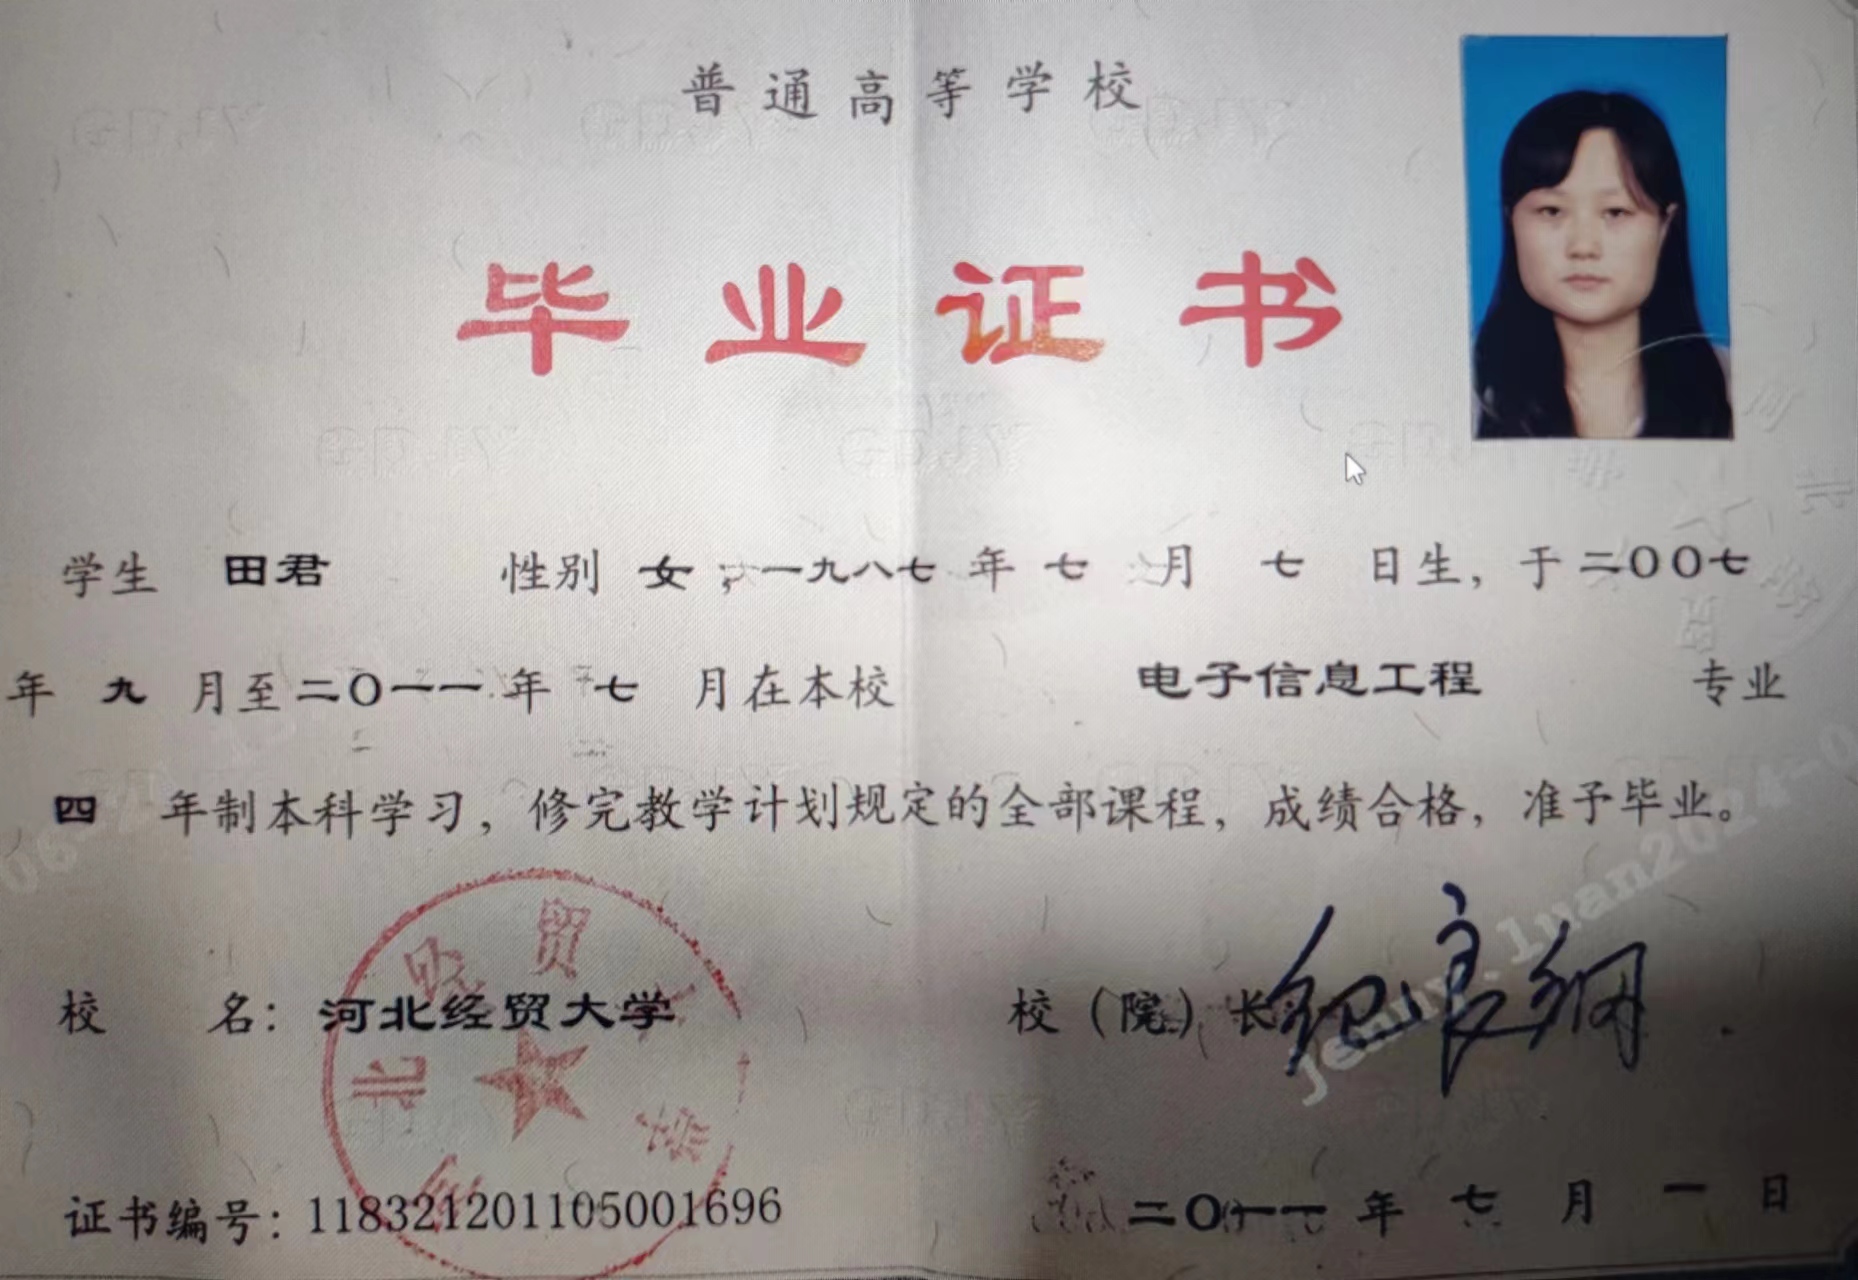 普通高等学校
毕业证书
学生 田君 性别 女，一九八七 年 七 月 七 日生，于 二〇〇七
年 九 月至 二〇一一 年 七 月在本校 电子信息工程 专业
四 年制本科学习，修完教学计划规定的全部课程，成绩合格，准予毕业。
校 名：河北经贸大学 校（院）长
证书编号：118321201105001696 二〇一一 年 七 月 一 日
jenny.luan2024-0